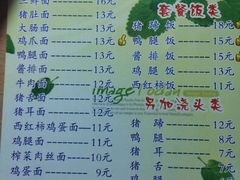 三鲜面——16元
猪肚面——13元
大肠面——13元
鸡爪面——13元
鸭腿面——13元
酱排面——13元
牛肉面
猪舌面
猪耳面——12元
西红柿鸡蛋面——
鸡腿面——11元
榨菜肉丝面——10元
鸡蛋面——9元
套餐饭类
猪蹄饭——18元
鸭腿饭——15元
酱排饭——15元
鸡腿饭——
西红柿饭
另加浇头类
猪蹄——
鸭腿——
猪耳——
猪舌——7元
鸡腿——7元